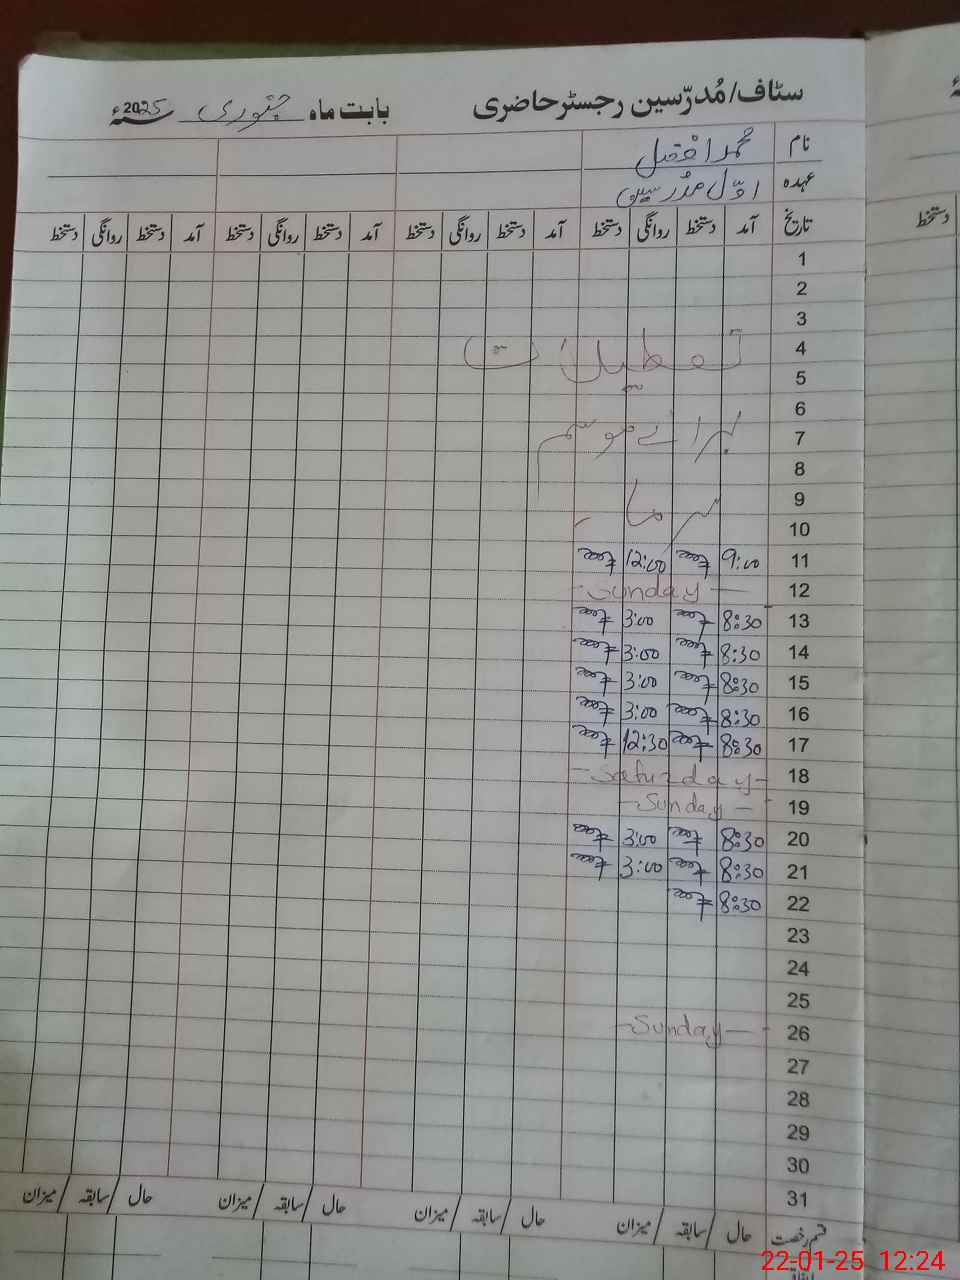 سٹاف/مُدرّسین رجسٹر حاضری بابت ماہ جنوری 2025ء
نام محمد افضل
عہدہ اوّل مدرسین
تاریخ آمد دستخط روانگی دستخط آمد دستخط روانگی دستخط آمد دستخط روانگی دستخط آمد دستخط روانگی دستخط
دستخط
1
2
3
4 تعطیلات
5
6
7 برائے موسم
8
9 سرما
10
11 9:00 12:00
12 Sunday
13 8:30 3:00
14 8:30 3:00
15 8:30 3:00
16 8:30 3:00
17 8:30 12:30
18 Saturday
19 Sunday
20 8:30 3:00
21 8:30 3:00
22 8:30
23
24
25
26 Sunday
27
28
29
30
31
قسم رخصت حال / سابقہ / میزان حال / سابقہ / میزان حال / سابقہ / میزان حال / سابقہ / میزان
22-01-25 12:24